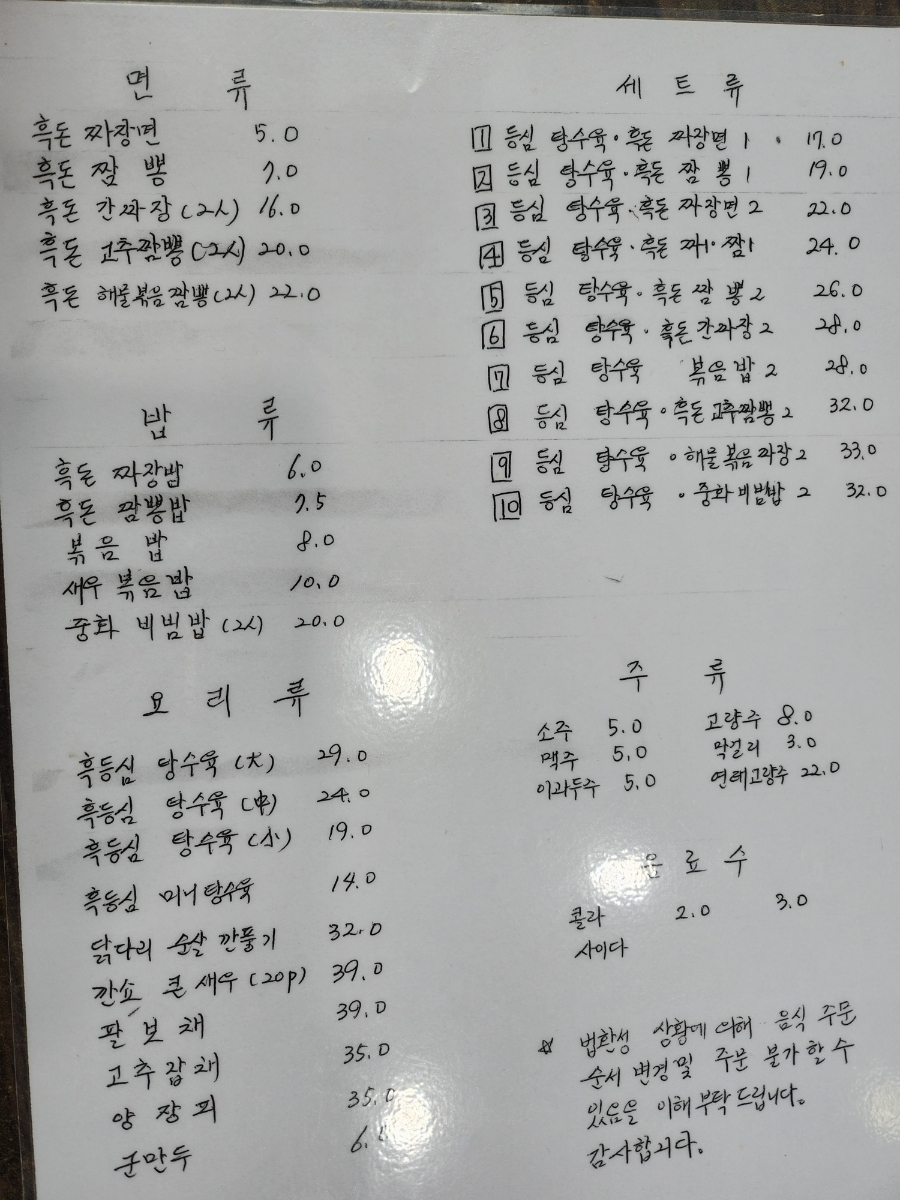 면 류
흑돈 짜장면 5.0
흑돈 짬 뽕 7.0
흑돈 간짜장 (2人) 16.0
흑돈 고추짬뽕 (2人) 20.0
흑돈 해물볶음짬뽕 (2人) 22.0
밥 류
흑돈 짜장밥 6.0
흑돈 짬뽕밥 7.5
볶음 밥 8.0
새우 볶음밥 10.0
중화 비빔밥 (2人) 20.0
요 리 류
흑등심 탕수육 (大) 29.0
흑등심 탕수육 (中) 24.0
흑등심 탕수육 (小) 19.0
흑등심 미니탕수육 14.0
닭다리 순살 깐풍기 32.0
깐쇼 큰새우 (20p) 39.0
팔 보 채 39.0
고추잡채 35.0
양 장 피 35.0
군만두 6.
세 트 류
1 등심 탕수육·흑돈 짜장면 1 17.0
2 등심 탕수육·흑돈 짬 뽕 1 19.0
3 등심 탕수육·흑돈 짜장면 2 22.0
4 등심 탕수육·흑돈 짜1·짬1 24.0
5 등심 탕수육·흑돈 짬 뽕 2 26.0
6 등심 탕수육·흑돈 간짜장 2 28.0
7 등심 탕수육 볶음밥 2 28.0
8 등심 탕수육·흑돈 고추짬뽕 2 32.0
9 등심 탕수육·해물볶음짜장 2 33.0
10 등심 탕수육·중화비빔밥 2 32.0
주 류
소주 5.0 고량주 8.0
맥주 5.0 막걸리 3.0
이과두주 5.0 연태고량주 22.0
음 료 수
콜라 2.0 3.0
사이다
☆ 법환성 상황에 의해 음식 주문
순서 변경및 주문 불가 할 수
있음을 이해 부탁 드립니다.
감사합니다.